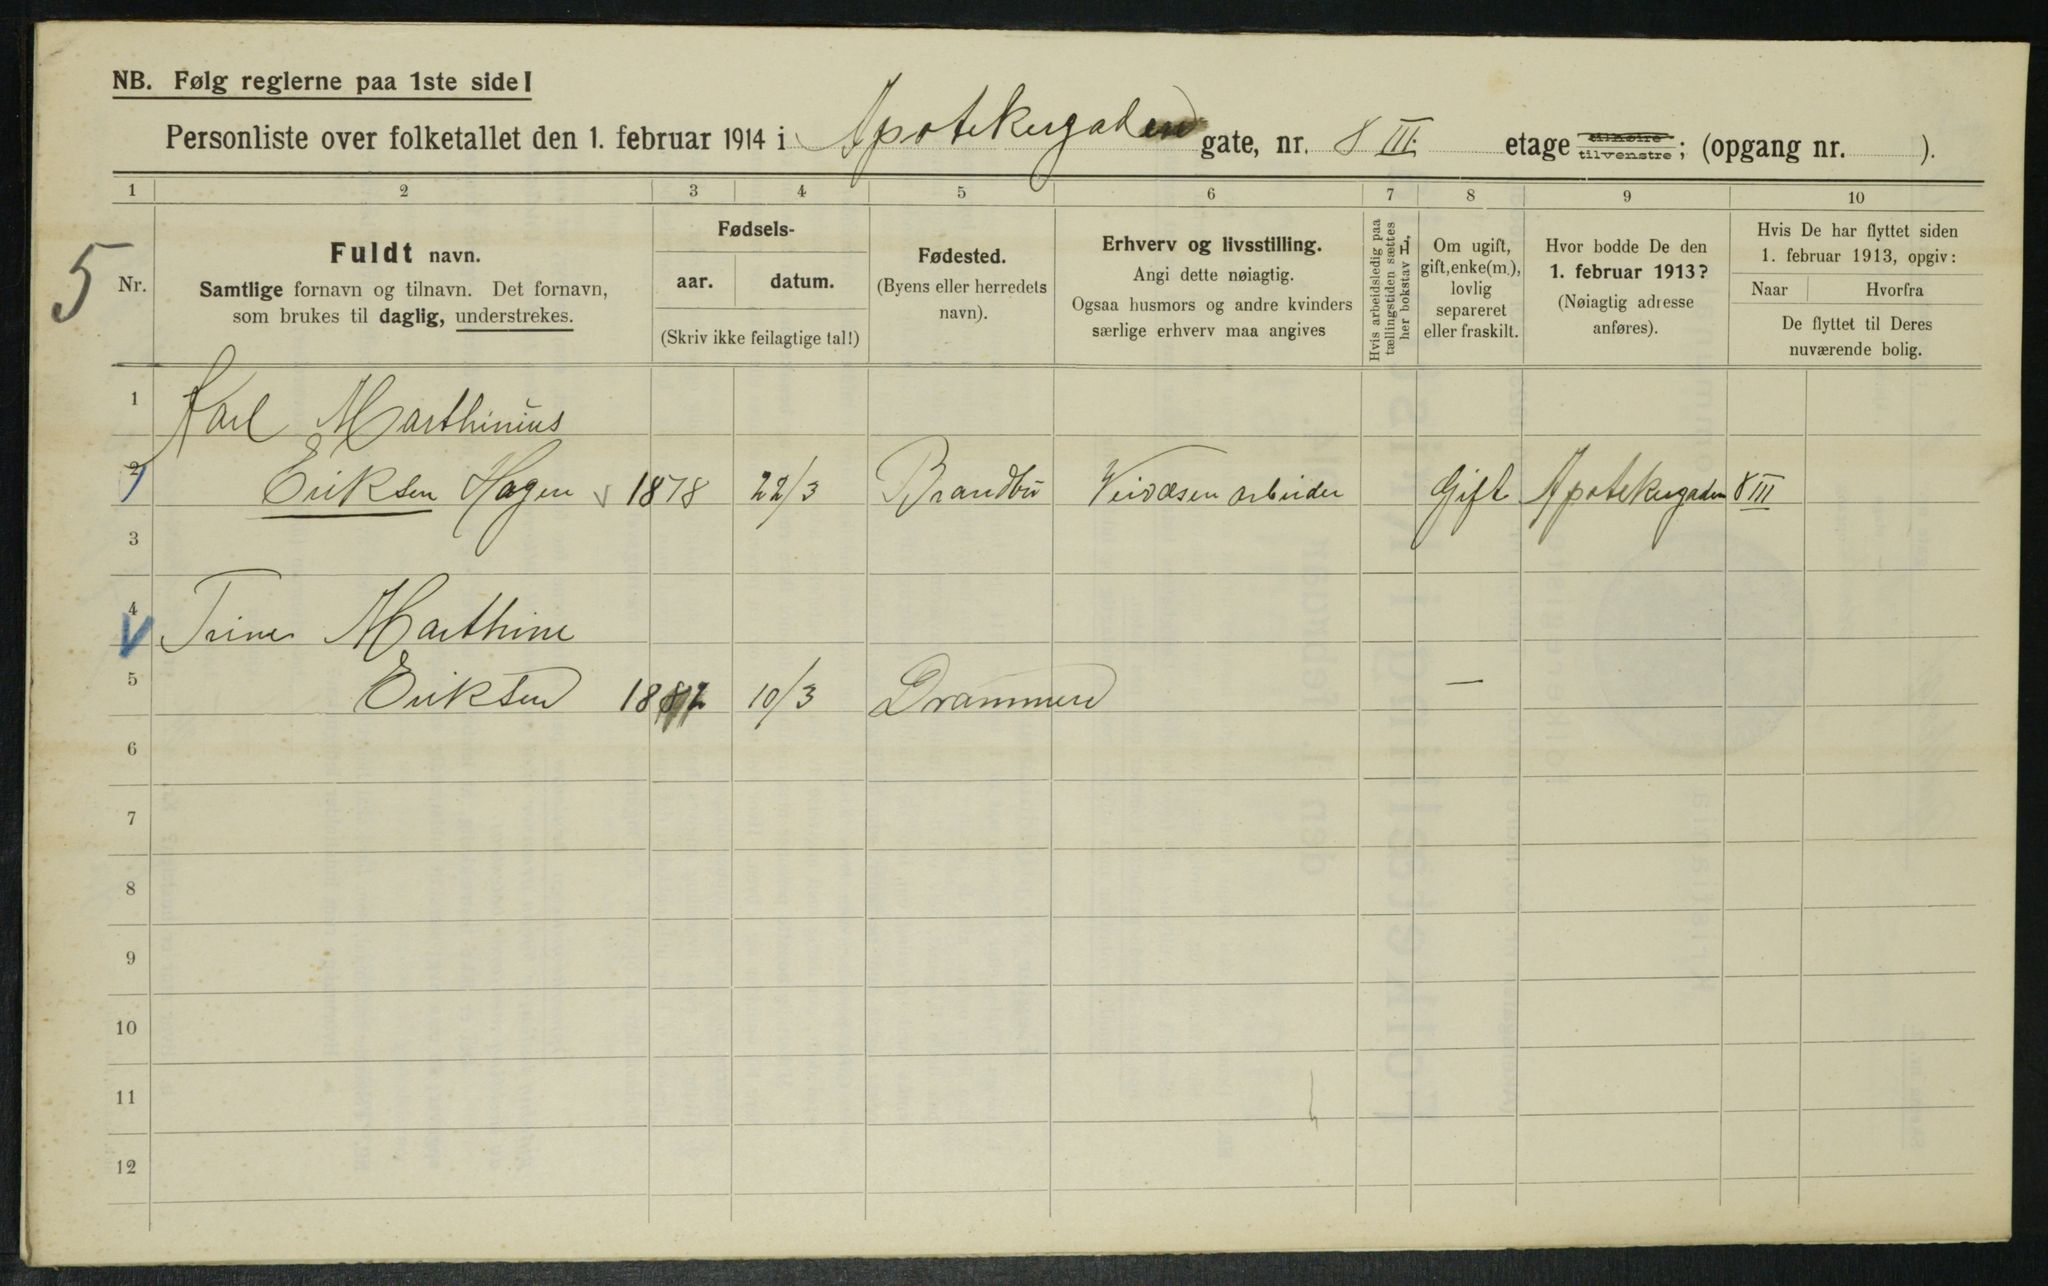 NB. Følg reglerne paa 1ste side!
Personliste over folketallet den 1. februar 1914 i Apotekergaden gate, nr. 8 III. etage tilhøire tilvenstre; (opgang nr. ).
1 2 3 4 5 6 7 8 9 10
5
Nr.
Fuldt navn.
Samtlige fornavn og tilnavn. Det fornavn,
som brukes til daglig, understrekes.
Fødsels-
aar. datum.
(Skriv ikke feilagtige tal!)
Fødested.
(Byens eller herredets
navn).
Erhverv og livsstilling.
Angi dette nøiagtig.
Ogsaa husmors og andre kvinders
særlige erhverv maa angives
Hvis arbeidsledig paa
tællingstiden sættes
her bokstav H,
Om ugift,
gift, enke(m.),
lovlig
separeret
eller fraskilt.
Hvor bodde De den
1. februar 1913?
(Nøiagtig adresse
anføres).
Hvis De har flyttet siden
1. februar 1913, opgiv:
Naar Hvorfra
De flyttet til Deres
nuværende bolig.
1 Karl Marthinius
2 Eriksen Hagen 1878 22/3 Brandbu Veivæsen arbeider Gift Apotekergaden 8 III
3
4 Trine Marthine
5 Eriksen 1882 10/3 Drammen —
6
7
8
9
10
11
12